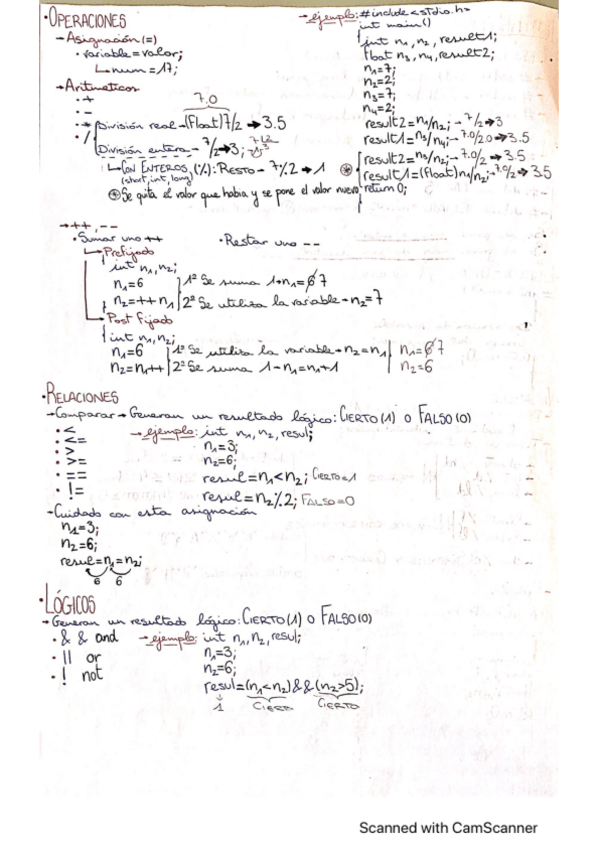 ·OPERACIONES
→Asignación(=)
·variable=valor;
↳num=17;
→Aritmeticos
·+
·-
·*
·/
7.0
División real→(float)7/2→3.5
División entera→7/2→3;
↳CON ENTEROS (%): RESTO→7%2→1
(short, int, long)
⊛Se quita el valor que habia y se pone el valor nuevo
→ejemplo: #include<stdio.h>
int main()
{int n1, n2, result1;
float n3, n4, result2;
n1=7;
n2=2;
n3=7;
n4=2;
result2=n1/n2;→7/2→3
result1=n3/n4;→7.0/2.0→3.5
⊛
result2=n3/n2;→7.0/2→3.5
result1=(float)n1/n2;→7.0/2→3.5
return 0;
→++, --
·Sumar uno ++
·Restar uno --
↳Prefijado
{int n1, n2;
n1=6
n2=++n1
1º Se suma 1→n1=6 7
2º Se utiliza la variable→n2=7
→Post fijado
{int n1, n2;
n1=6
n2=n1++
1º Se utiliza la variable→n2=n1
2º Se suma 1→n1=n1+1
n1=6 7
n2=6
·RELACIONES
→Comparar→Generan un resultado lógico: CIERTO(1) O FALSO(0)
·<
·<=
·>
·>=
·==
·!=
→ejemplo: int n1, n2, resul;
n1=3;
n2=6;
resul=n1<n2; CIERTO=1
resul=n2%2; FALSO=0
→Cuidado con esta asignación
n1=3;
n2=6;
resul=n1=n2;
6 6
·LÓGICOS
→Generan un resultado lógico: CIERTO(1) O FALSO(0)
·& & and
·|| or
·! not
→ejemplo: int n1, n2, resul;
n1=3;
n2=6;
resul=(n1<n2)&&(n2>5);
1 CIERT CIERTO
Scanned with CamScanner